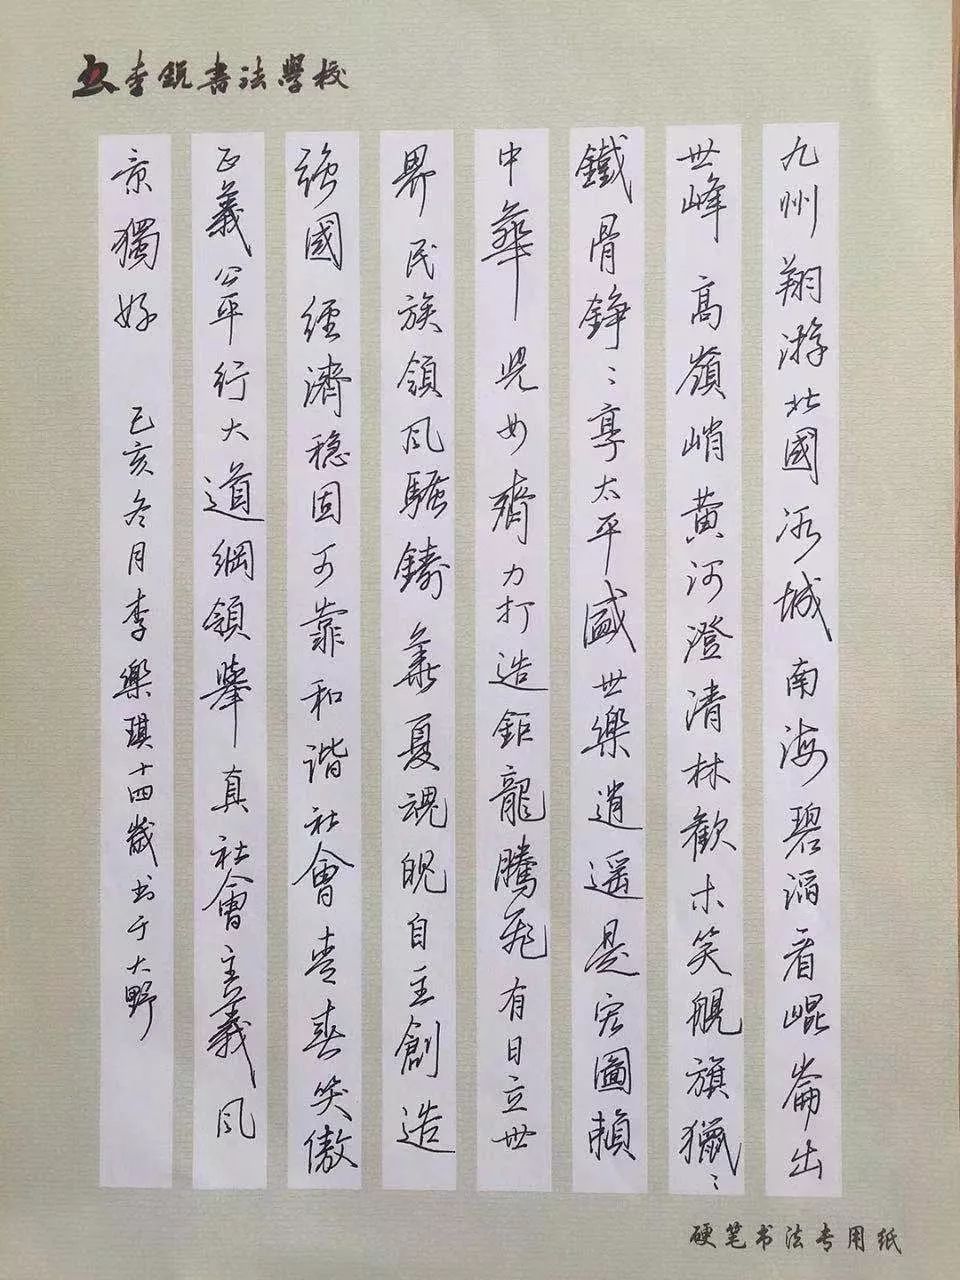 李锐書法學校
九州翔游北國冰城南海碧滔看崐崙出
世峰高嶺峭黄河澄清林歡木笑舰旗獵〻
鐵骨錚〻享太平盛世樂逍遥是宏圖賴
中華児女齊力打造鉅龍騰飛有日立世
界民族領风騷鑄華夏魂魄自主創造
強國經濟稳固可靠和谐社會青春笑傲
正義公平行大道綱領舉真社會主義风
景獨好 己亥冬月李樂琪十四歲书于大野
硬笔书法专用纸